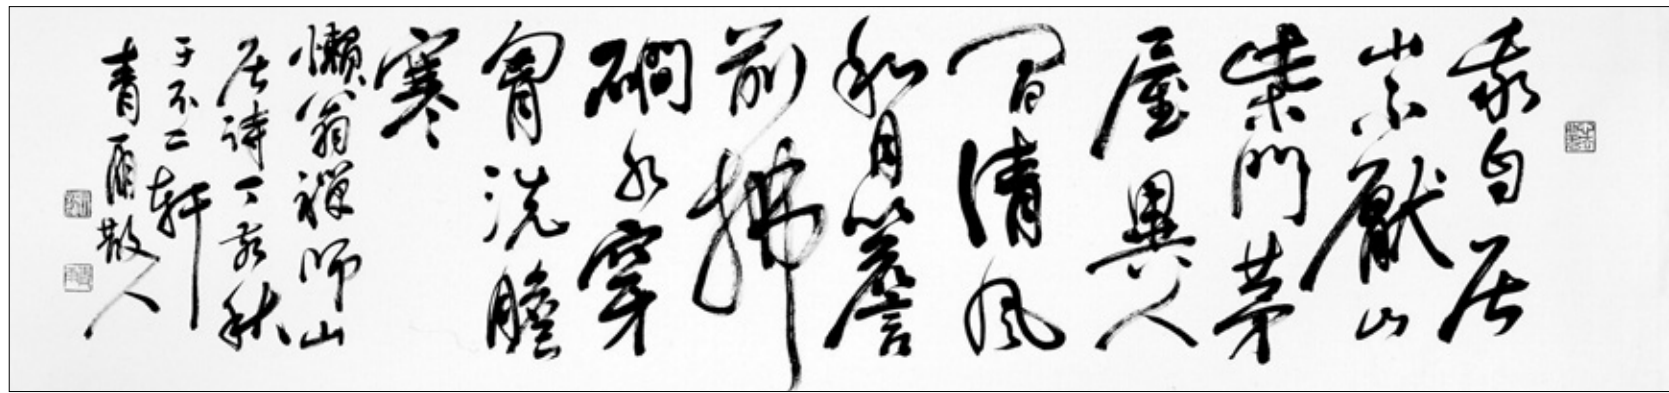 我自居
山不厭山
柴門茅
屋異人
間清風
和月簷
前拂
磵水穿
胷洗膽
寒
懶翁禪師山
居詩丁亥秋
于不二軒
青散人